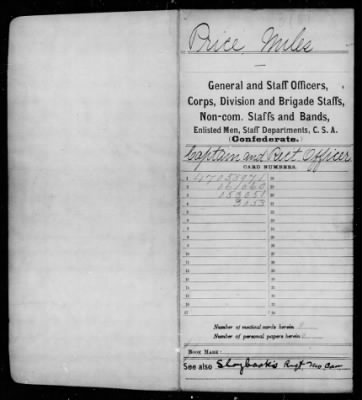 Price Miles
General and Staff Officers,
Corps, Division and Brigade Staffs,
Non-com. Staffs and Bands,
Enlisted Men, Staff Departments, C. S. A.
(Confederate.)
Captain and Officer
CARD NUMBERS.
1 47053971
2 161060
3 153051
4 3053
Number of medical cards herein
Number of personal papers herein
BOOK MARK:
See also Slayback's Regt Mo Cav